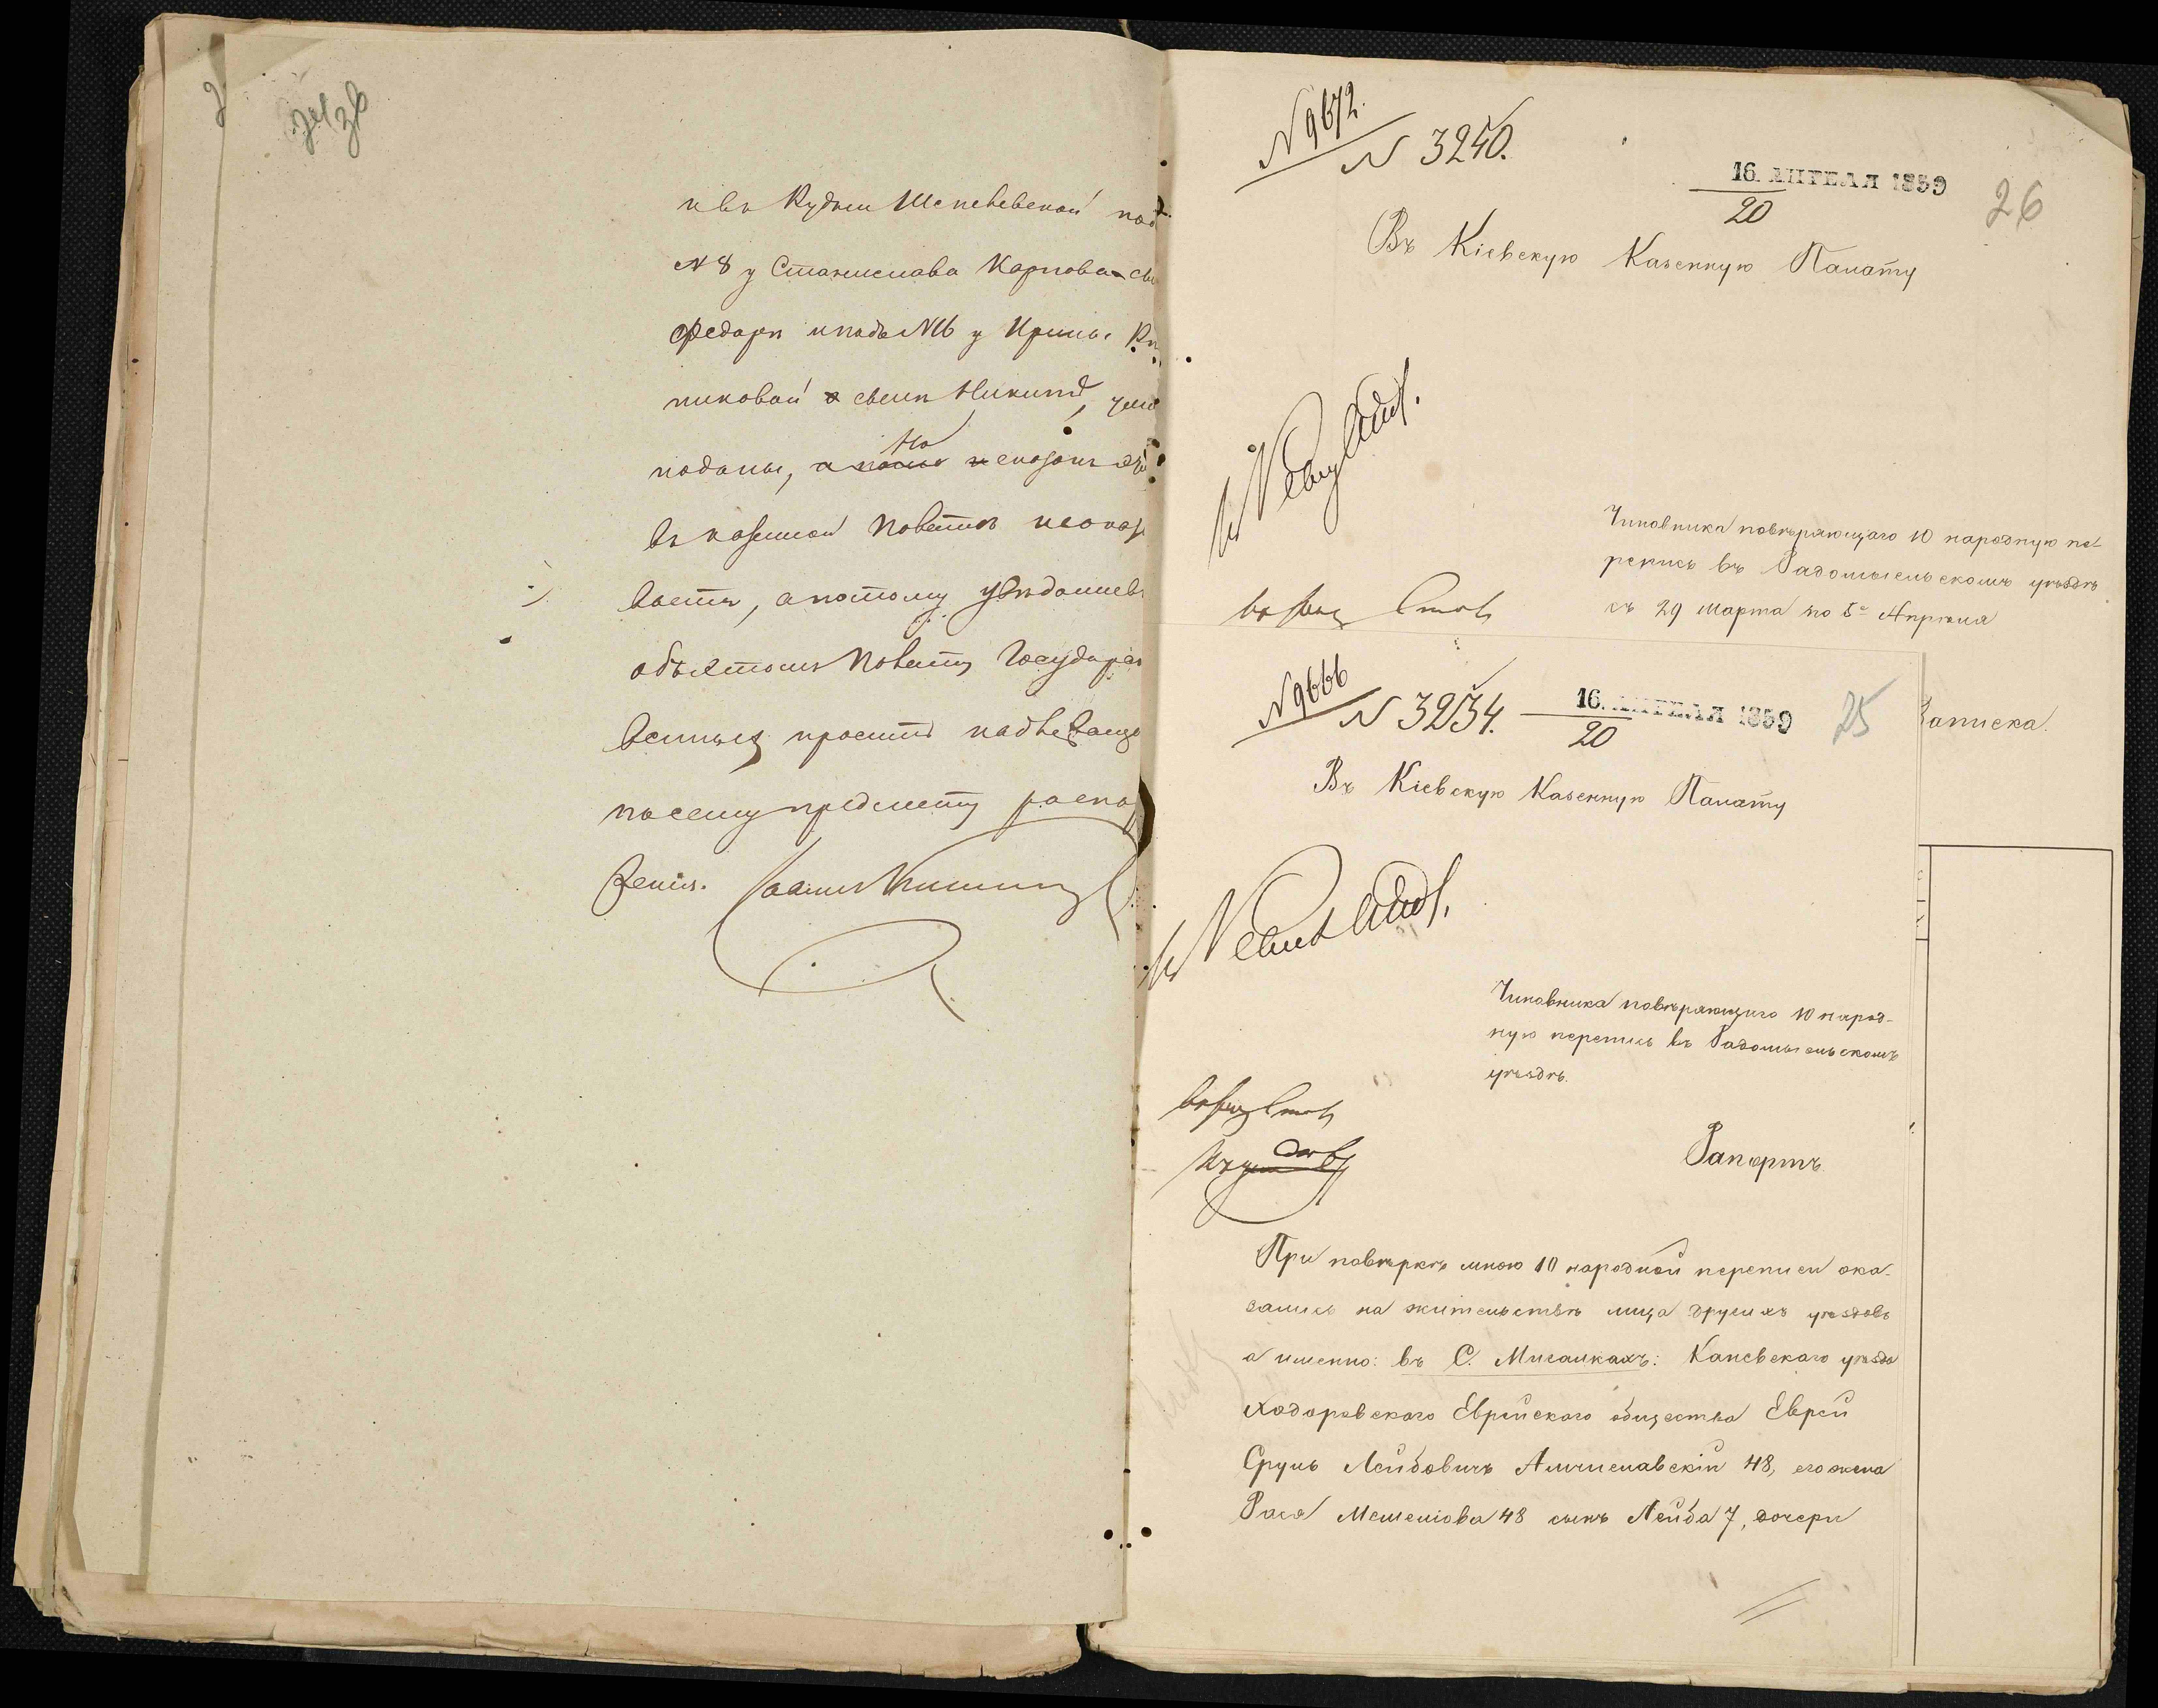 26
къ Рудни Шепелевской под
№ 8 у Станислава Карпова сы
Федоръ и подъ № 16 у Ирины
никовой сынъ Никита,
поданы, а но
въ казенной Полатѣ неоказы
вается, а потому увѣдомивъ
объ этомъ Полату Государст
венныхъ проситъ надлежаща
по сему предмету распоря
женія.
№ 9672.
№ 3240.
16. АПРЕЛЯ 1859
20
26
Въ Кіевскую Казенную Палату
Чиновника повѣряющаго 10 народную пе-
репись въ Радомысльскомъ уѣздѣ
съ 29 Марта по 5е Апрѣля
Записка.
№ 9666
№ 3234.
16. АПРЕЛЯ 1859
20
25
Въ Кіевскую Казенную Палату
Чиновника повѣряющаго 10 народ-
ную перепись въ Радомысльскомъ
уѣздѣ.
Рапортъ.
При повѣркѣ мною 10 народной переписи ока-
зались на жительствѣ лица другихъ уѣздовъ
а именно: въ С. Мигалкахъ: Каневскаго уѣзда
Ходоровскаго Еврейскаго общества Еврей
Сруль Лейбовичъ 48, его жена
Рася 48 сынъ Лейба 7, дочери